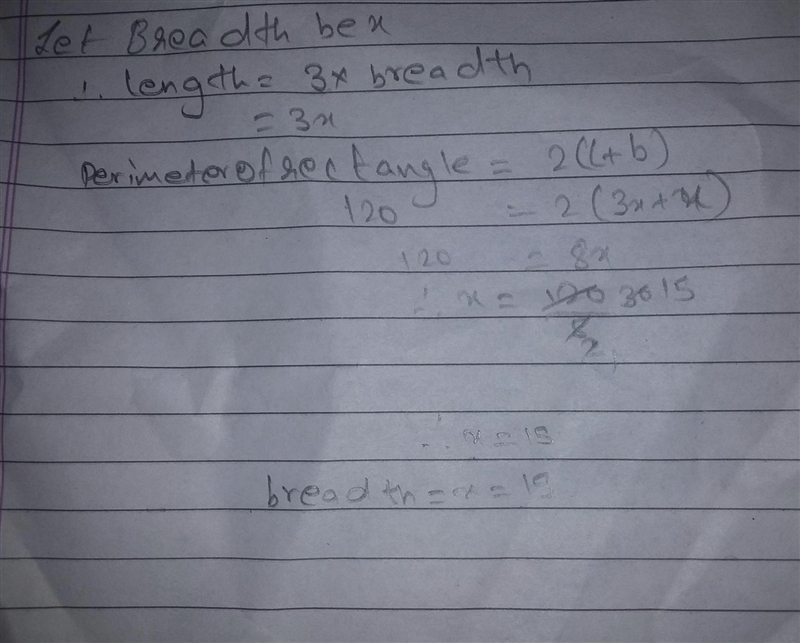 Let Breadth be x
∴ length = 3x breadth
= 3x
Perimeter of rectangle = 2(l+b)
120 = 2(3x+x)
120 = 8x
∴ x = 120 30 15
8 2
∴ x = 15
breadth = x = 15